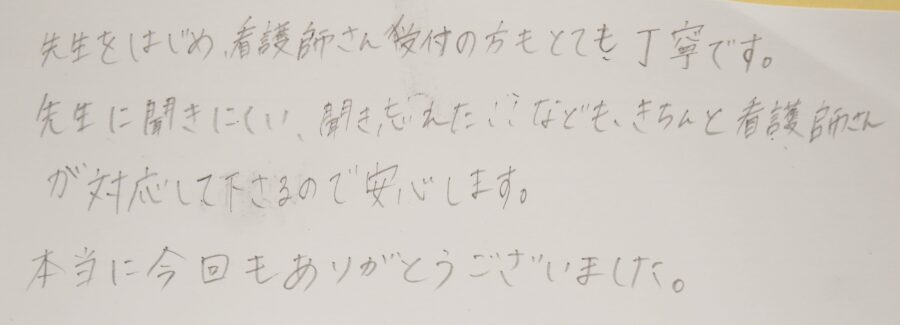 先生をはじめ、看護師さん受付の方もとても、丁寧です。
先生に聞きにくい、聞き忘れた…なども、きちんと看護師さん
が対応して下さるので安心します。
本当に今回もありがとうございました。